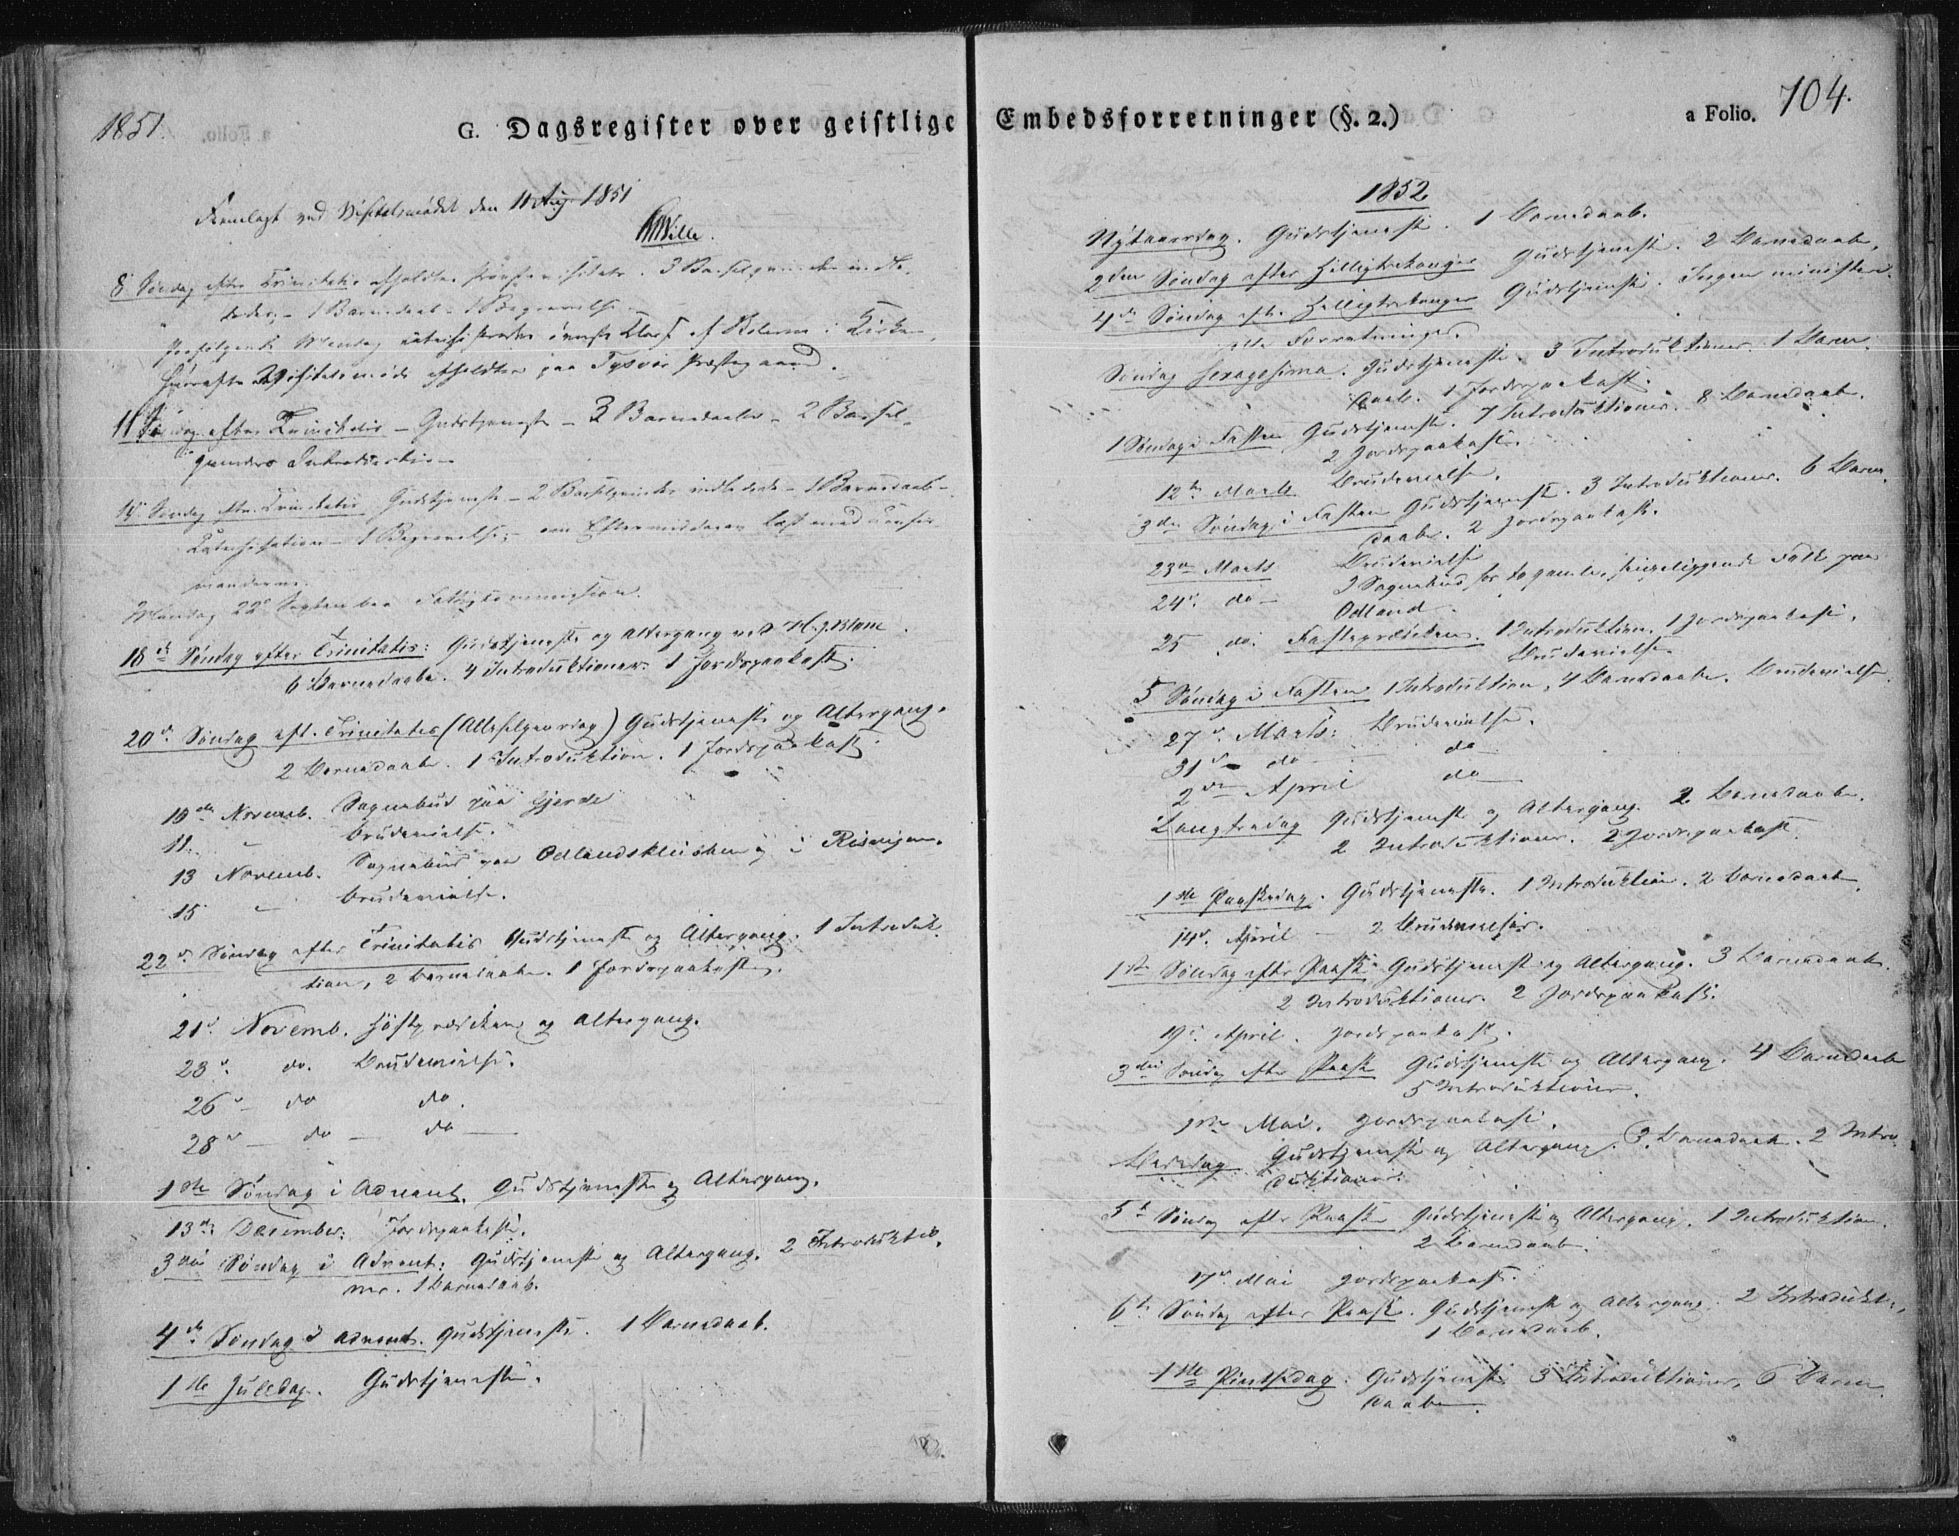 1851.
G. Dagsregister over geistlige Embedsforretninger (§. 2.)
a Folio. 104.
Fremlagt ved Visitatsmødet den 11 Aug 1851
8 Søndag efter Trinitatis afholdtes 3 Barselqvinder indle-
dede, – 1 Barnedaab – 1 Begravelse –
Paafølgende Mandag øverste Klasse af Skolerne i Kirken
Visitatsmøde afholdtes paa Tysvær Præstegaard.
11 Søndag efter Trinitatis – Gudstjeneste – 3 Barnedaab – 2 Barsel-
qvinders Introduction –
Søndag efter Trinitatis Gudstjeneste – 2 Barselqvinder indledede – 1 Barnedaab –
Katechisation – 1 Begravelse; – om Eftermiddagen
Mandag 22de September Fattigkommission.
18de Søndag efter Trinitatis: Gudstjeneste og Altergang ved
6 Barnedaab. 4 Introduktioner. 1 Jordspaakast.
20de Søndag eft. Trinitatis (Allehelgensdag) Gudstjeneste og Altergang.
2 Barnedaab. 1 Introduktion. 1 Jordspaakast
10de Novemb. Sognebud paa Gjerde
11 " Brudevielse.
13 Novemb. Sognebud paa og i
15 – Brudevielse.
22de Søndag efter Trinitatis Gudstjeneste og Altergang. 1 Introduk-
tion, 2 Barnedaab. 1 Jordspaakast.
21de Novemb. Høstprædiken og Altergang.
23de do. Brudevielse.
26de – do do.
28de – do – do –
1ste Søndag i Advent. Gudstjeneste og Altergang.
13de December: Jordspaakast.
3die Søndag i Advent: Gudstjeneste og Altergang. 2 Introduktio-
ner. 1 Barnedaab.
4de Søndag i Advent. Gudstjeneste. 1 Barnedaab.
1ste Juledag. Gudstjeneste.
1852
Nytaarsdag. Gudstjeneste. 1 Barnedaab.
2den Søndag efter Helligtrekonger Gudstjeneste. 2 Barnedaab.
4de Søndag eft. Helligtrekonger Gudstjeneste. Ingen ministeri-
elle Forretninger.
Søndag Sexagesima. Gudstjeneste. 3 Introduktioner. 1 Barne-
daab. 1 Jordspaakast.
1 Søndag i Fasten Gudstjeneste. 7 Introduktioner. 8 Barnedaab.
2 Jordspaakast.
12te Marts Brudevielse.
3die Søndag i Fasten Gudstjeneste. 3 Introduktioner. 6 Barne-
daab. 2 Jordspaakast.
23de Marts Brudevielse
24de do – 2 Sognebud for to gamle, sengeliggende Folk paa
Odland.
25 do. Fasteprædiken. 1 Introduktion. 1 Jordspaakast.
Brudevielse.
5 Søndag i Fasten 1 Introduktion, 4 Barnedaab. Brudevielse.
27de Marts: Brudevielse.
31te do – do –
2den April do –
Langfredag Gudstjeneste og Altergang. 2 Barnedaab.
2 Introduktioner. 2 Jordspaakast.
1ste Paaskedag. Gudstjeneste. 1 Introduktion. 2 Barnedaab.
14de April – 2 Brudevielser.
1ste Søndag efter Paaske Gudstjeneste og Altergang. 3 Barnedaab.
2 Introduktioner. 2 Jordspaakast.
19de April. Jordspaakast.
3die Søndag efter Paaske Gudstjeneste og Altergang. 4 Barnedaab
5 Introduktioner.
1ste Mai. Jordspaakast.
Bededag Gudstjeneste og Altergang. 3 Barnedaab. 2 Intro-
duktioner.
5te Søndag efter Paaske Gudstjeneste og Altergang. 1 Introduktion.
2 Barnedaab.
17de Mai Jordspaakast.
6te Søndag efter Paaske. Gudstjeneste og Altergang. 2 Introdukt.,
1 Barnedaab.
1ste Pintsedag: Gudstjeneste 3 Introduktioner, 6 Barne-
daab.